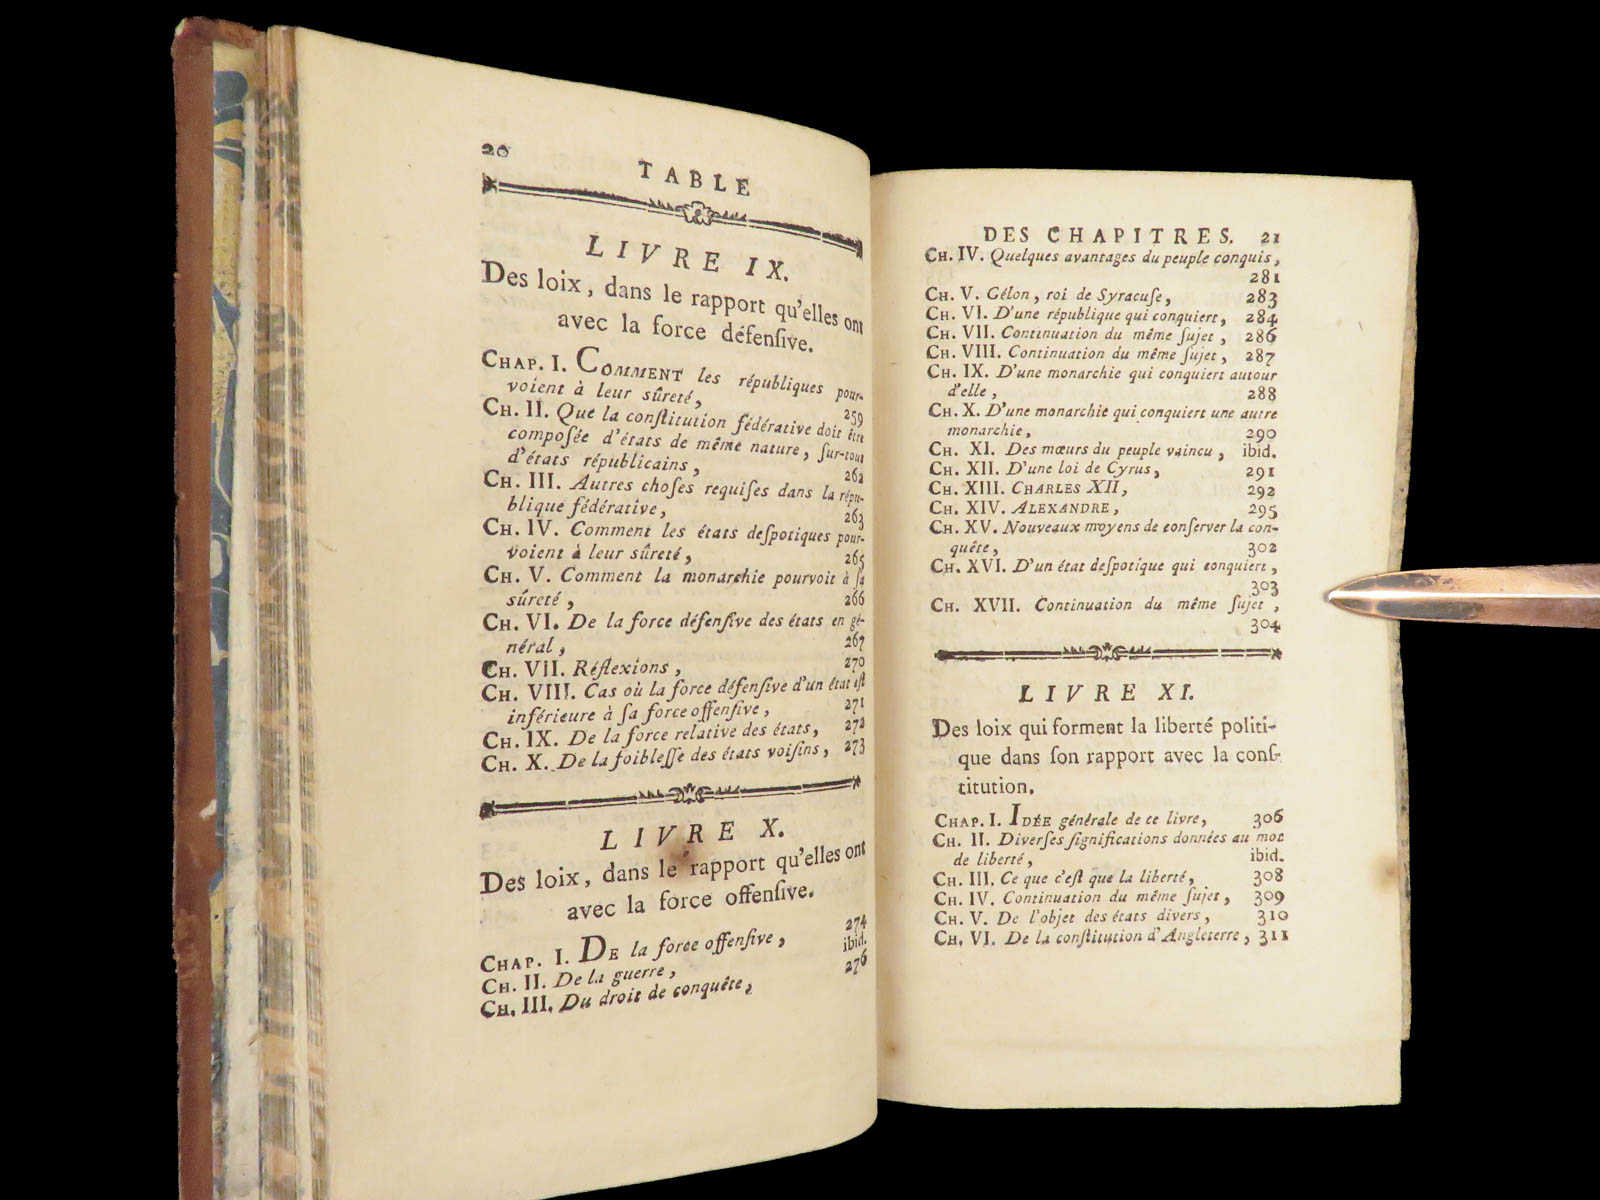 20
TABLE
LIVRE IX.
Des loix, dans le rapport qu'elles ont
avec la force défenſive.
CHAP. I. COMMENT les républiques pour-
voient à leur sûreté, 259
CH. II. Que la conſtitution fédérative doit être
compoſée d'états de même nature, ſur-tout
d'états républicains, 262
CH. III. Autres choſes requiſes dans la répu-
blique fédérative, 263
CH. IV. Comment les états deſpotiques pour-
voient à leur sûreté, 265
CH. V. Comment la monarchie pourvoit à ſa
sûreté, 266
CH. VI. De la force défenſive des états en gé-
néral, 267
CH. VII. Réflexions, 270
CH. VIII. Cas où la force défenſive d'un état eſt
inférieure à ſa force offenſive, 271
CH. IX. De la force relative des états, 272
CH. X. De la foibleſſe des états voiſins, 273
LIVRE X.
Des loix, dans le rapport qu'elles ont
avec la force offenſive.
CHAP. I. DE la force offenſive, 274
CH. II. De la guerre, ibid.
CH. III. Du droit de conquête, 276
DES CHAPITRES. 21
CH. IV. Quelques avantages du peuple conquis,
281
CH. V. Gélon, roi de Syracuſe, 283
CH. VI. D'une république qui conquiert, 284
CH. VII. Continuation du même ſujet, 286
CH. VIII. Continuation du même ſujet, 287
CH. IX. D'une monarchie qui conquiert autour
d'elle, 288
CH. X. D'une monarchie qui conquiert une autre
monarchie, 290
CH. XI. Des mœurs du peuple vaincu, ibid.
CH. XII. D'une loi de Cyrus, 291
CH. XIII. CHARLES XII, 292
CH. XIV. ALEXANDRE, 295
CH. XV. Nouveaux moyens de conſerver la con-
quête, 302
CH. XVI. D'un état deſpotique qui conquiert,
303
CH. XVII. Continuation du même ſujet,
304
LIVRE XI.
Des loix qui forment la liberté politi-
que dans ſon rapport avec la conſ-
titution.
CHAP. I. IDÉE générale de ce livre, 306
CH. II. Diverſes ſignifications données au mot
de liberté, ibid.
CH. III. Ce que c'eſt que la liberté, 308
CH. IV. Continuation du même ſujet, 309
CH. V. De l'objet des états divers, 310
CH. VI. De la conſtitution d'Angleterre, 311